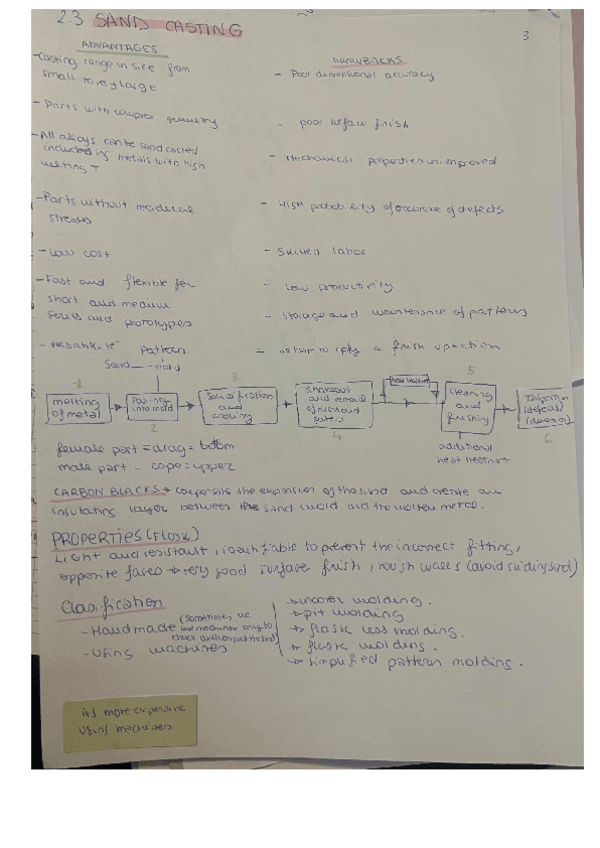 2.3 SAND CASTING
3
ADVANTAGES
-Casting range in size from
small to very large
- Parts with complex geometry
-All alloys can be sand casted
including metals with high
melting T
-Parts without residual
stresses
-Low cost
-Fast and flexible for
short and medium
series and prototypes
- versatile
DRAWBACKS
- Poor dimensional accuracy
- poor surface finish
- Mechanical properties unimproved
- High probability of ocurrence of defects
- Skilled labor
- Low productivity
- Storage and maintenance of patterns
Pattern
Sand mold
1
melting
of metal
Pouring
into mold
2
3
Solidification
and
cooling
and removal
4
5
cleaning
and
finishing
additional
heat treatment
Inspection
(defects)
6
female part = drag = bottom
male part - cope = upper
CARBON BLACKS → compensate the expansion of the sand and create an
insulating layer between the sand mold and the molten metal.
PROPERTIES (Flask)
Light and resistant, identifiable to prevent the incorrect fitting,
opposite faces → very good surface finish, rough walls (avoid sliding sand)
Clasification
- Hand made (sometimes we
use machines only to
- Using machines
→ uncover molding.
→ pit molding
→ flask less molding.
→ flask molding.
→ simplified pattern molding.
it's more expensive
using machines